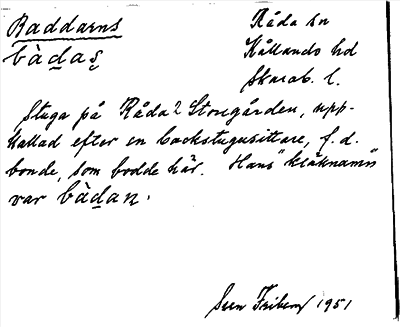 Baddarns
bàdas̨
Råda sn
Kållands hd
Skarab. l.
Stuga på Råda 2 Storegården, upp-
kallad efter en backstugusittare, f.d.
bonde, som bodde här. Hans "klåknamn"
var bàdan.
Sven Friberg 1951